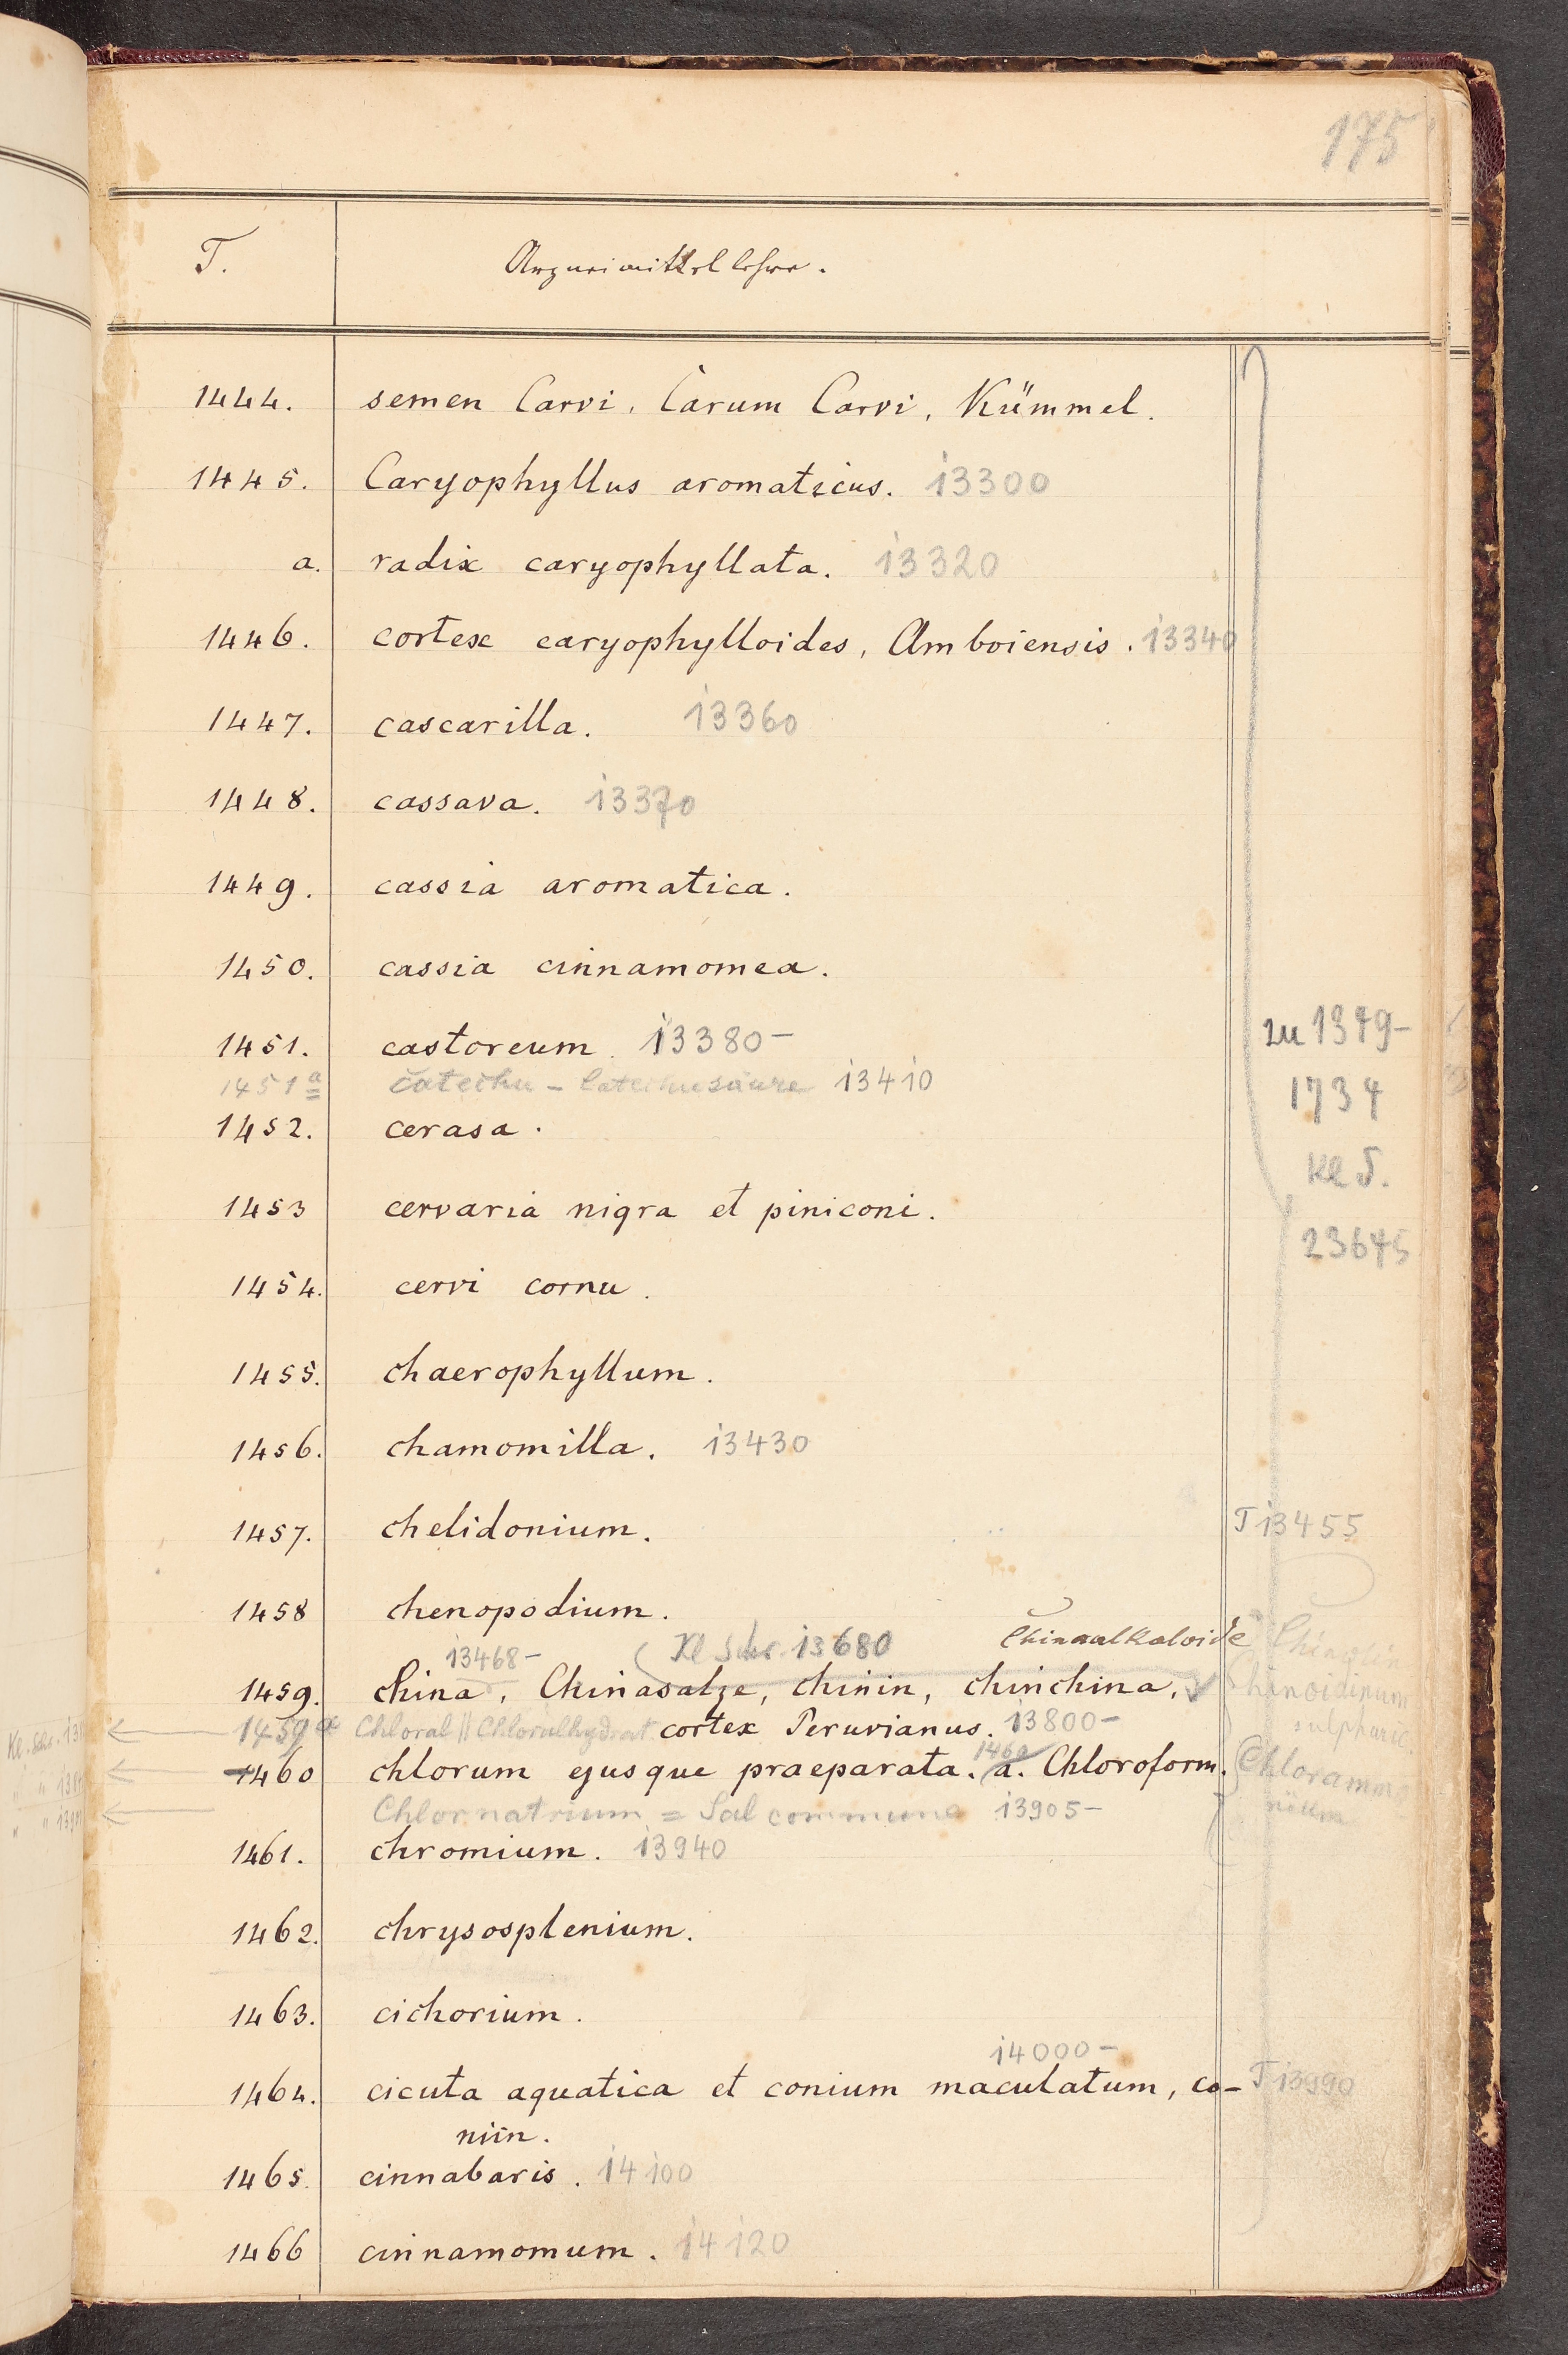 175
T. Arzneimittellehre.
1444. semen Carvi, Carum Carvi, Kümmel.
1445. Caryophyllus aromaticus. 13300
a. radix caryophyllata. 13320
1446. cortex caryophylloides, Amboiensis. 13340
1447. cascarilla. 13360
1448. cassava. 13370
1449. cassia aromatica.
1450. cassia cinnamomea.
1451. castoreum. 13380-
zu 1379-
1451a catechu - Catechusäure 13410
1734
1452. cerasa.
Kl S.
1453 cervaria nigra et piniconi.
23645
1454. cervi cornu.
1455. chaerophyllum.
1456. chamomilla. 13430
1457. chelidonium. T 13455
1458 chenopodium.
13468- Kl Schr. 13680 Chinaalkaloide
1459. China, Chinasalze, chinin, chinchina, Chinoidinum
sulphuric.
1459a Chloral || Chloralhydrat cortex Peruvianus. 13800-
1460 chlorum ejusque praeparata. 1460 a. Chloroform. Chlorammo
nium
Chlornatrium = Sal commune 13905-
1461. chromium. 13940
1462. chrysosplenium.
1463. cichorium.
14000-
1464. cicuta aquatica et conium maculatum, co- T 13990
niin.
1465. cinnabaris. 14100
1466 cinnamomum. 14120